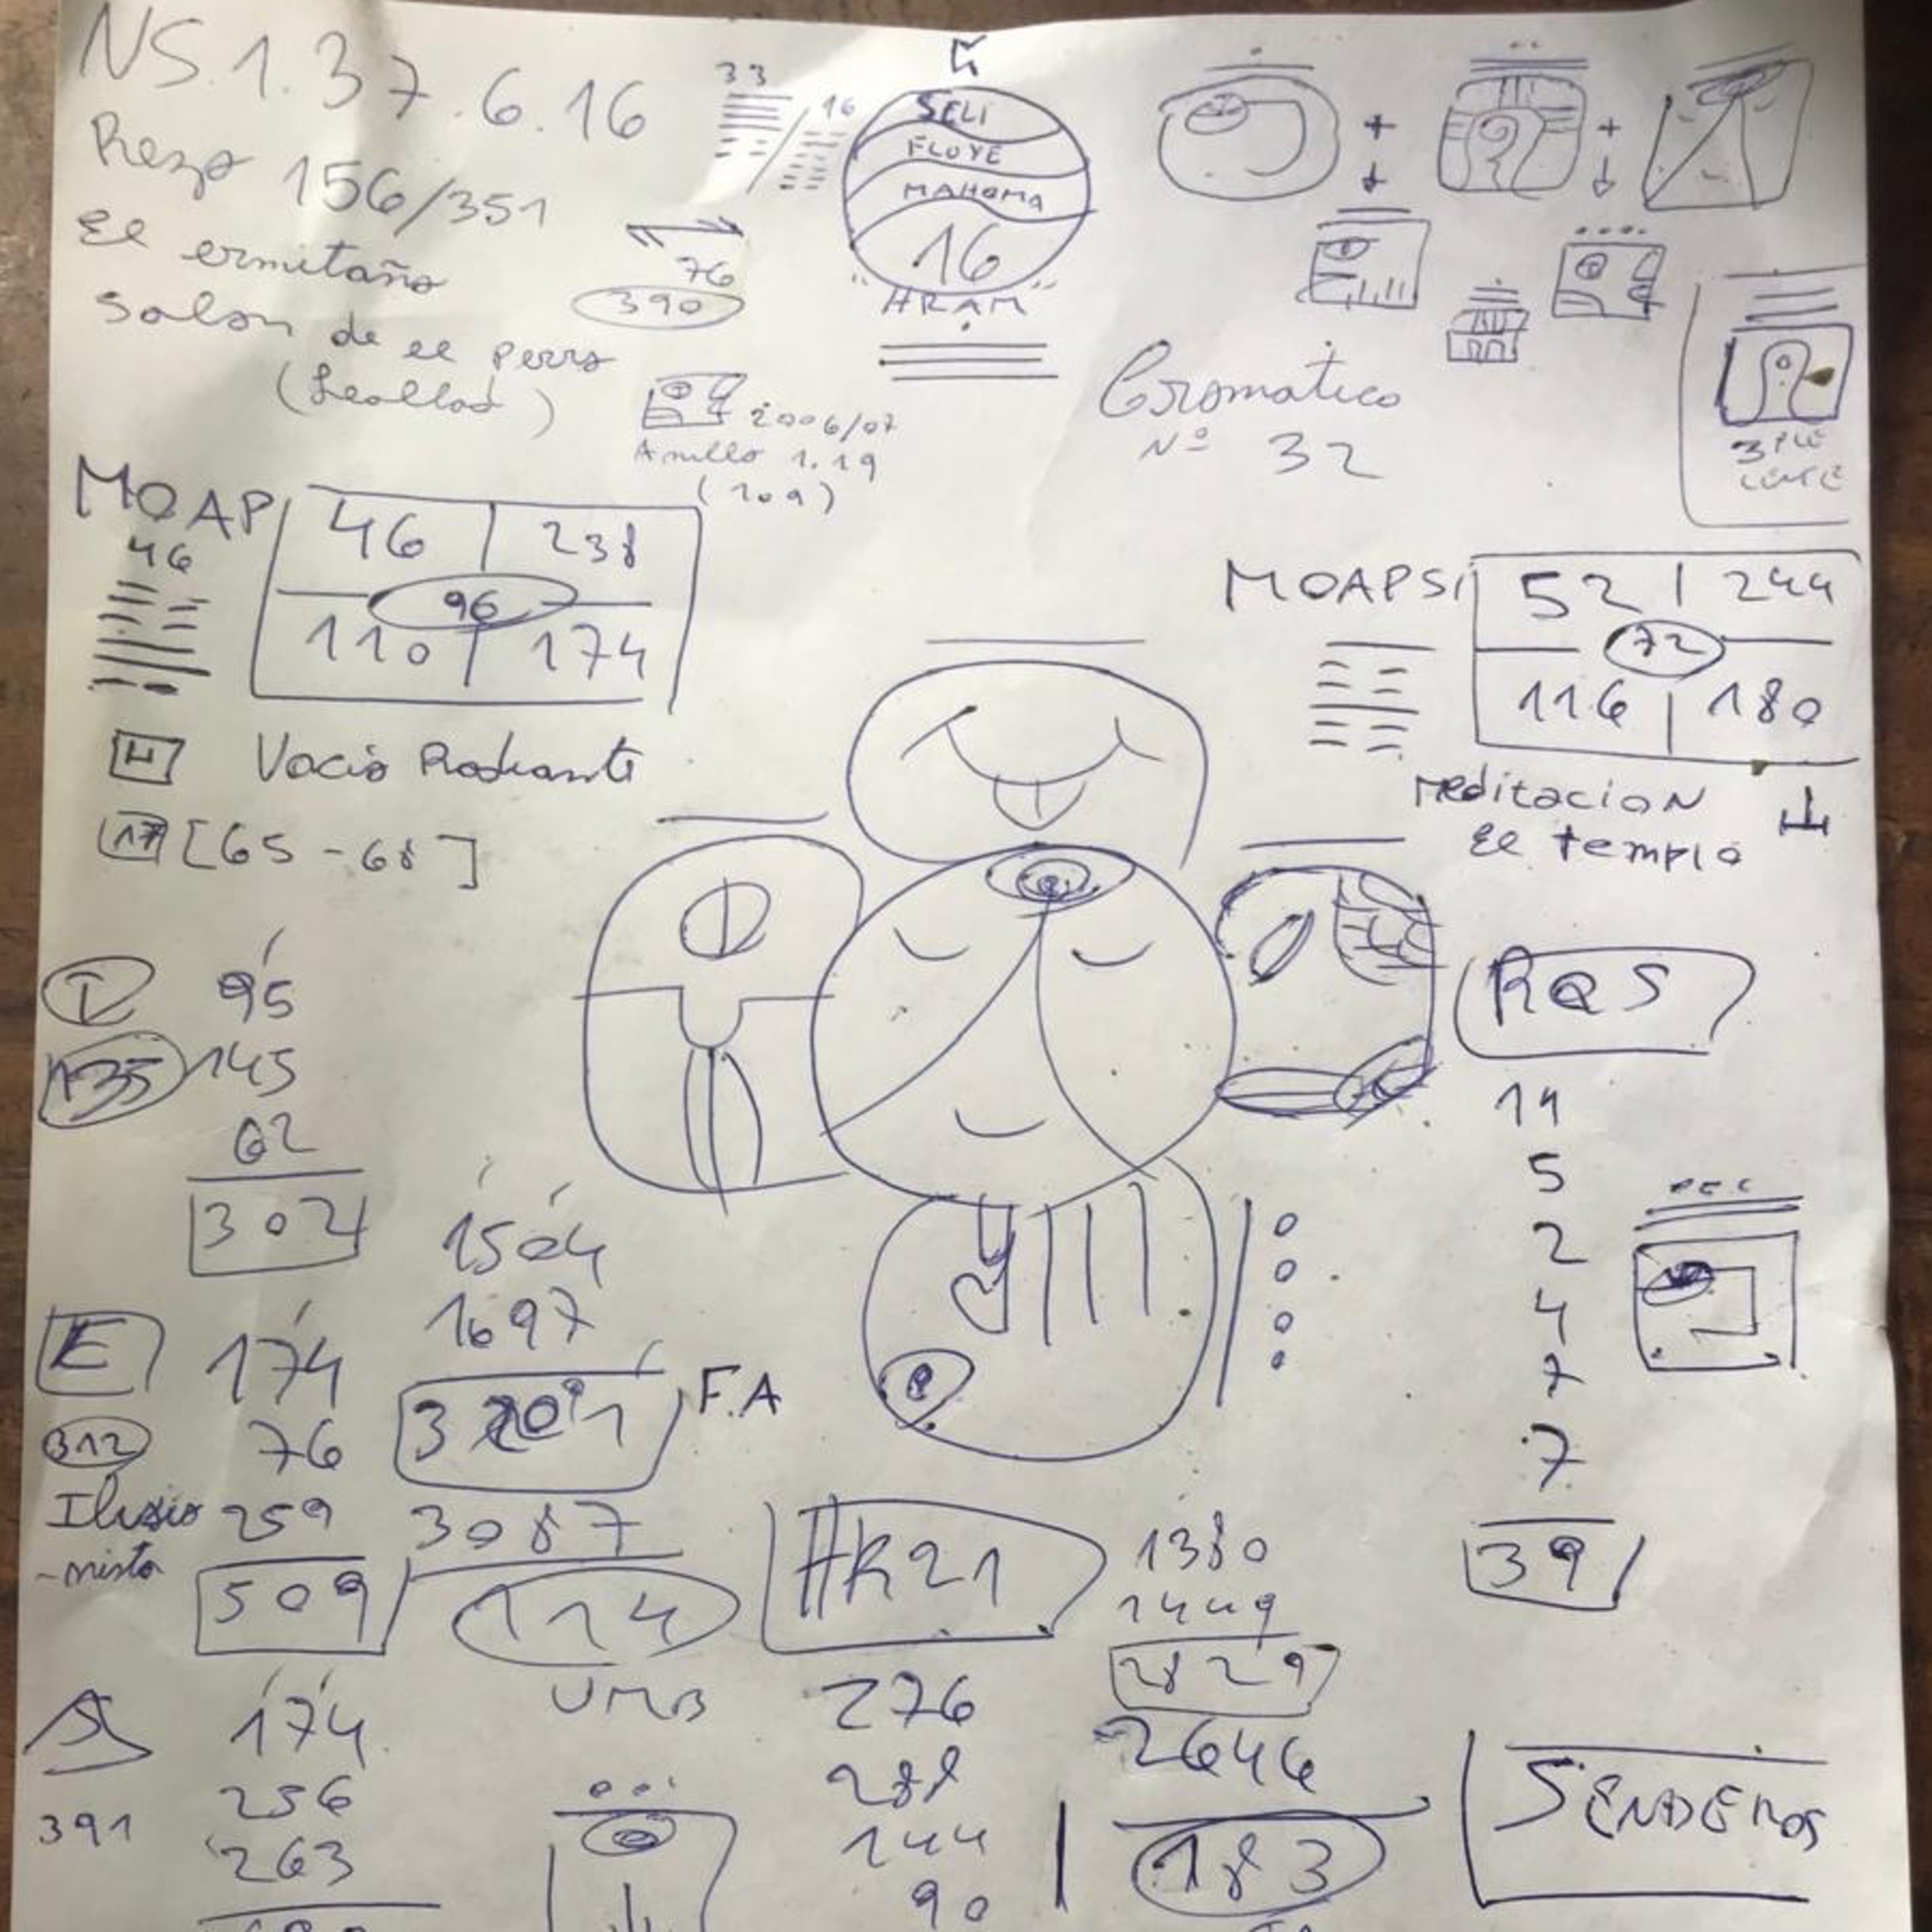 NS.1.37.6.16
Rezo 156/351
El ermitaño
Salon de el perro
33
16
76
390
SELI
FLUYE
MAHOMA
16
"HRAM"
2006/07
Anillo 1.19
(109)
Cromatico
Nº 32
MOAP
46
46 238
96
110 174
Vacio Radiante
17 [65-68]
MOAPSI
52 244
72
116 180
meditacion
El templo
95
135 145
62
302
1504
1697
F.A
3087
114
UMB
E 174
312 76
Ilusio 259
-nista
509
174
256
391
263
HR21
276
288
144
90
1380
1449
2829
2646
183
RQS
14
5
2
4
7
7
39
SENDEROS